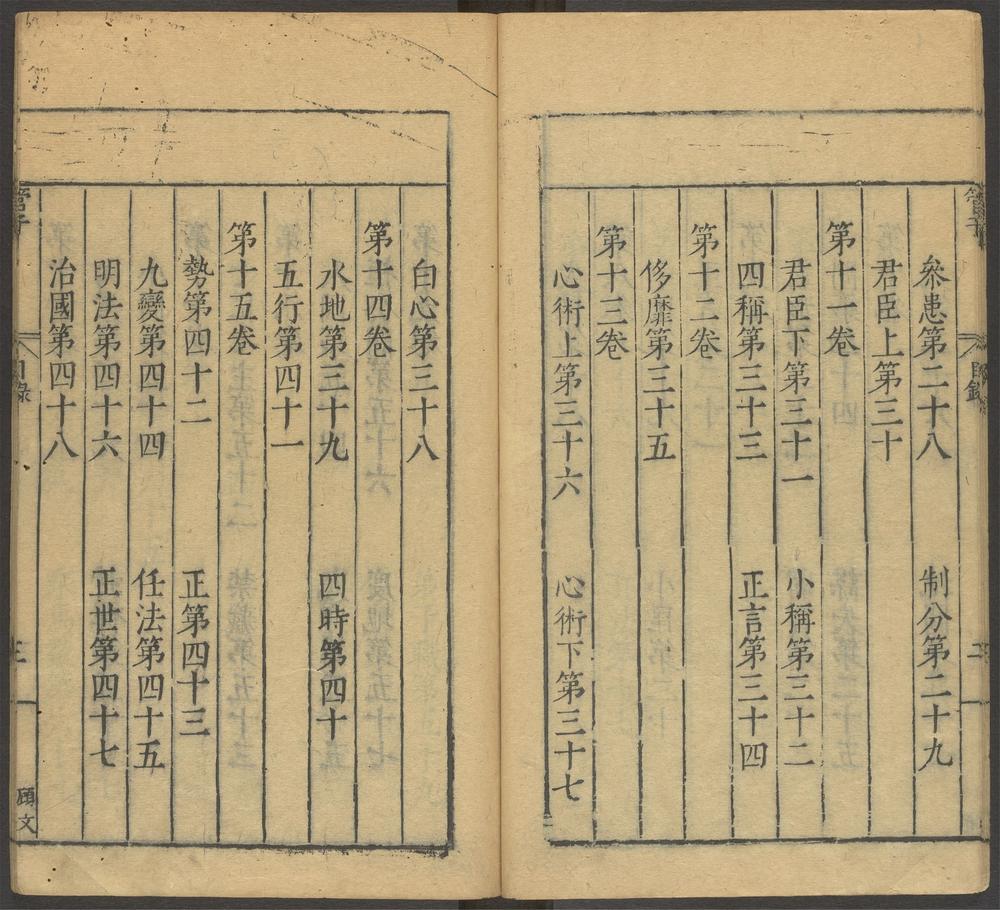 參患第二十八 制分第二十九
君臣上第三十
第十一卷
君臣下第三十一 小稱第三十二
四稱第三十三 正言第三十四
第十二卷
侈靡第三十五
第十三卷
心術上第三十六 心術下第三十七
白心第三十八
第十四卷
水地第三十九 四時第四十
五行第四十一
第十五卷
勢第四十二 正第四十三
九變第四十四 任法第四十五
明法第四十六 正世第四十七
治國第四十八
管子 目錄 三 顧文